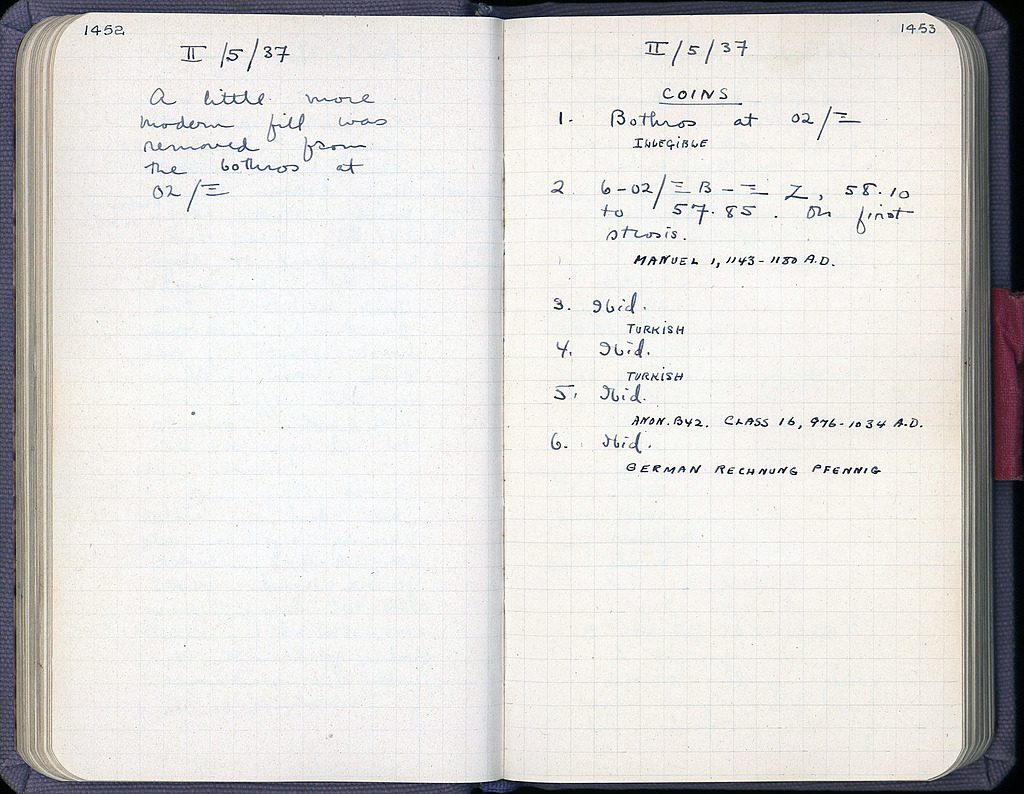 1452
II/5/37
A little more
modern fill was
removed from
the bothros at
02/Ξ
1453
II/5/37
COINS
1. Bothros at 02/Ξ
ILLEGIBLE
2. 6-02/Ξ B - Ξ Z, 58.10
to 57.85. On first
strosis.
MANUEL 1, 1143-1180 A.D.
3. Ibid.
TURKISH
4. Ibid.
TURKISH
5. Ibid.
ANON. BYZ. CLASS 16, 976-1034 A.D.
6. Ibid.
GERMAN RECHNUNG PFENNIG